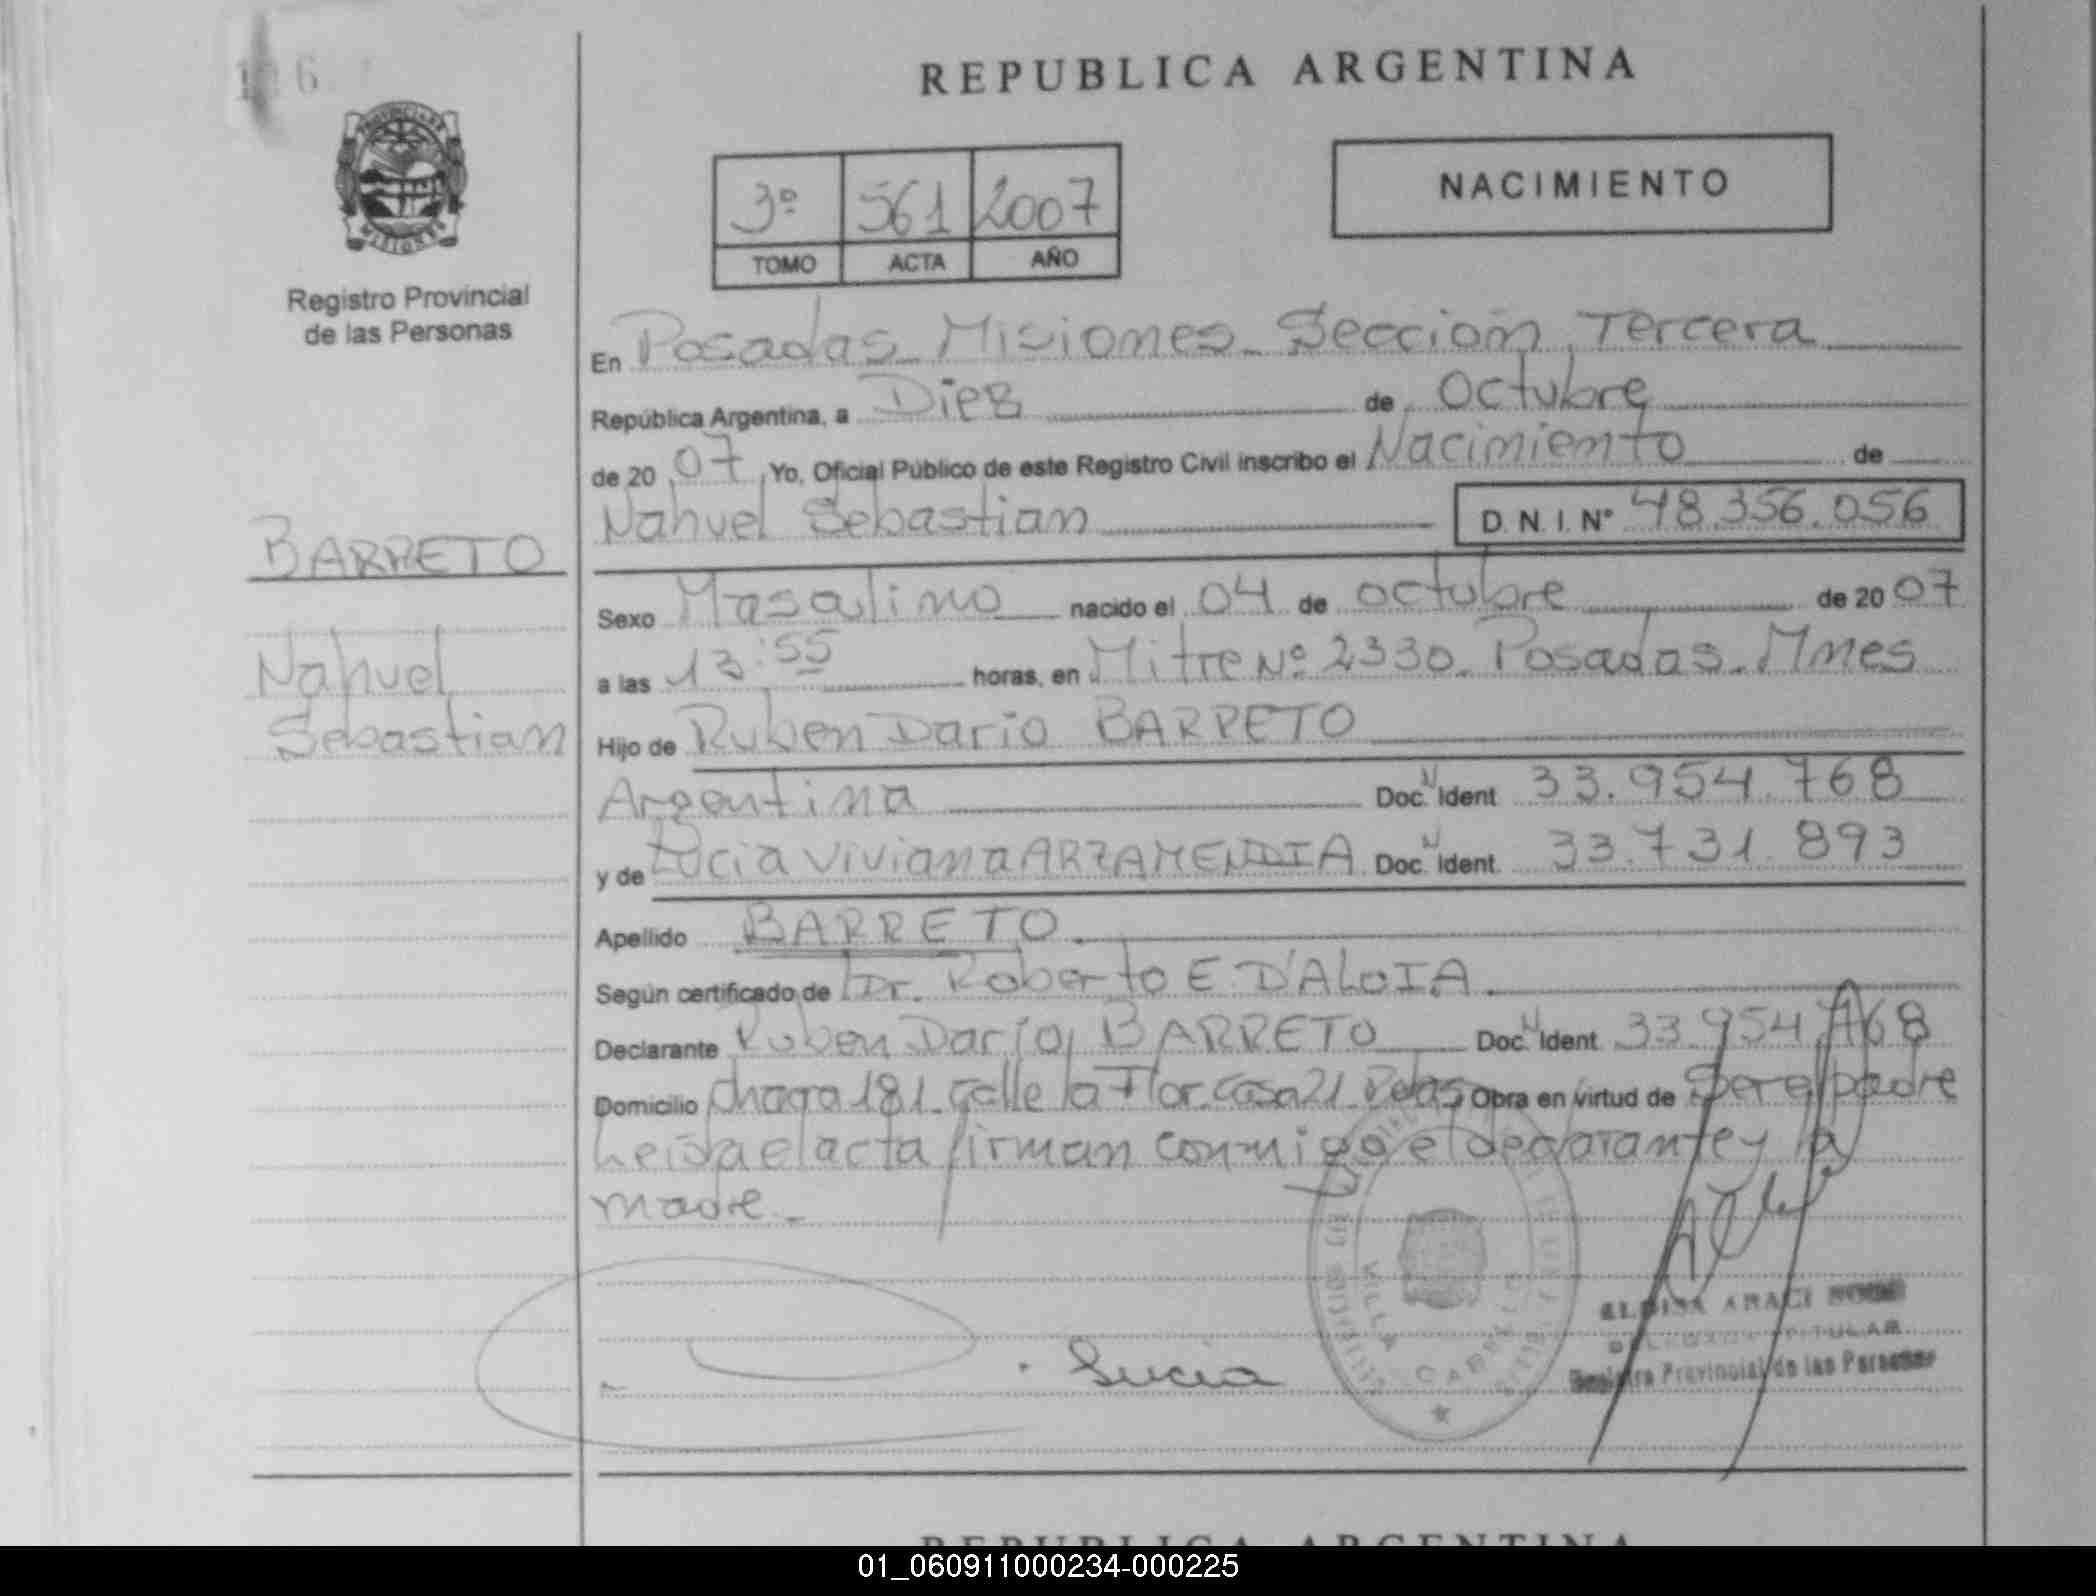 6
REPUBLICA ARGENTINA
PROVINCIA DE
MISIONES
3º 561 2007
TOMO ACTA AÑO
NACIMIENTO
Registro Provincial
de las Personas
En Posadas Misiones Sección Tercera
República Argentina, a Diez de Octubre
de 20 07 Yo, Oficial Público de este Registro Civil inscribo el Nacimiento de
Nahuel Sebastian D.N.I.Nº 48.356.056
BARRETO
Sexo Masculino nacido el 04 de octubre de 20 07
Nahuel
a las 13:55 horas, en Mitre Nº 2330. Posadas. Mnes
Sebastian
Hijo de Ruben Dario BARRETO
Argentina Doc. N Ident 33.954.768
y de Lucia Viviana ARZAMENDIA Doc. N Ident. 33.731.893
Apellido BARRETO.
Según certificado de Dr. Roberto E. D'ALOIA.
Declarante Ruben Darío BARRETO Doc. N Ident. 33.954.768
Domicilio Chacra 181. Calle la Flor. Casa 21. Pdas Obra en virtud de Ser el padre
Leída el acta firman conmigo el declarante y la
madre.-
Lucia
VILLA CABELLO
ELOISA ARACI
DELEGADA TITULAR
Registro Provincial de las Personas
REPUBLICA ARGENTINA
01_060911000234-000225